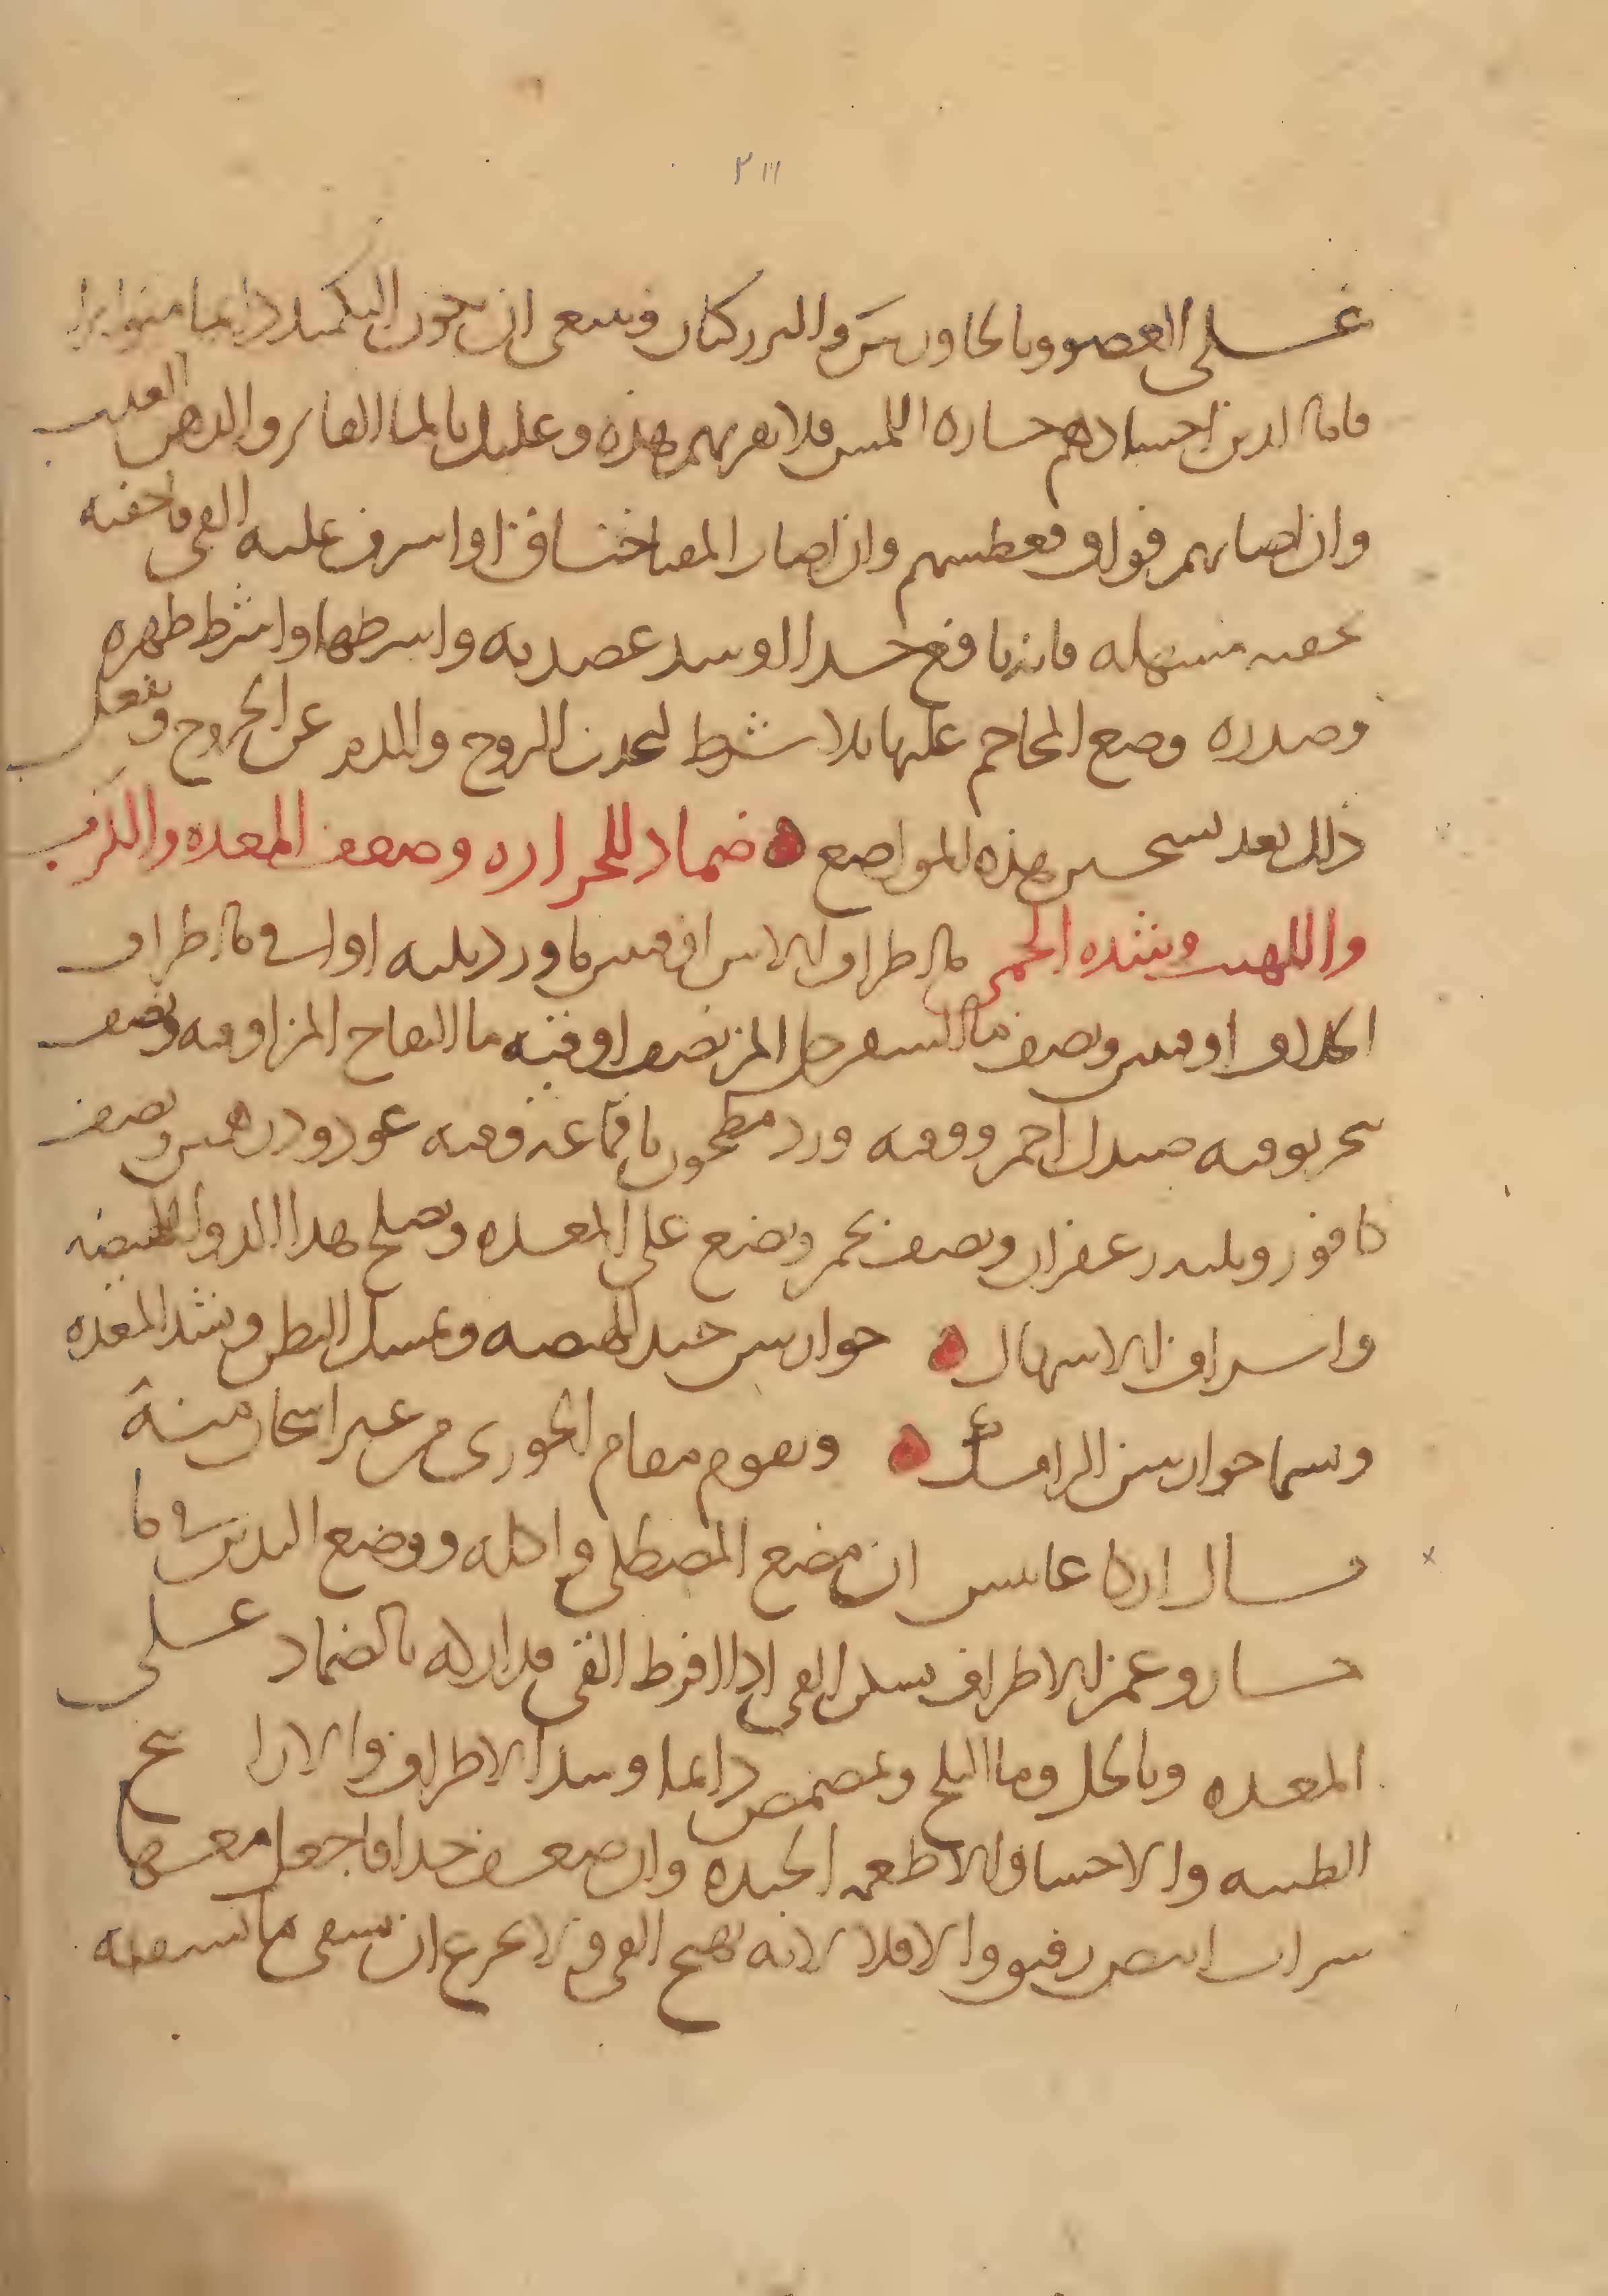 ٢١١
على العضو وبالجاورس والبزركتان وينبغي ان يكون التكميد دايما متواترا
فاما الذين اجسادهم حاره اللمس فلا تقربهم هذه وعليك بالماء الفاتر والدهن العذب
وان اصابهم فواق فعطسهم وان اصاب المعا اختناق او اسرف عليه القي فاحقنه
بحقنه مسهله فانه نافع جدا او شد عضديه واربطها واشرط ظهره
وصدره وضع المحاجم عليها بلا شرط لتجذب الروح والدم عن الخروج وتفعل
ذلك بعد تسخين هذه المواضع ضماد للحراره وضعف المعده والكرب
واللهيب وشده الحمى ما اطراف الاس اوقيتين ماورد ثلثه اواق ما اطراف
الخلاف اوقيتين ونصف ما السفرجل المز نصف اوقيه ما التفاح المز اوقيه ونصف
صندل احمر ووقيه ورد مطحون باقماعه وقيه عود ودرهمين ونصف
كافور وثلث زعفران ونصف يخمر ويضع على المعده ويصلح هذا الدوا للهيضه
واسراف الاسهال جوارش جيد للهيضه ويمسك البطن ويشد المعده
ويسما جوارش الرامك ويقوم مقام الخوزي من غير اسخان منه
قال اركاغانيس ان مضع المصطكى واكله ووضع اليدين في ما
حار وغمز الاطراف يسكن القي اذا افرط القي فداركه بالضماد على
المعده وبالخل وما الثلج ويتمضمض دايما وشد الاطراف والارايح
الطيبه والاحسا والاطعمه الجيده وان ضعف جدا فاجعل معها
شراب ابيض رقيق والا فلا لانه يهيج القي ولا يجزع ان يسقى ما تسقيه